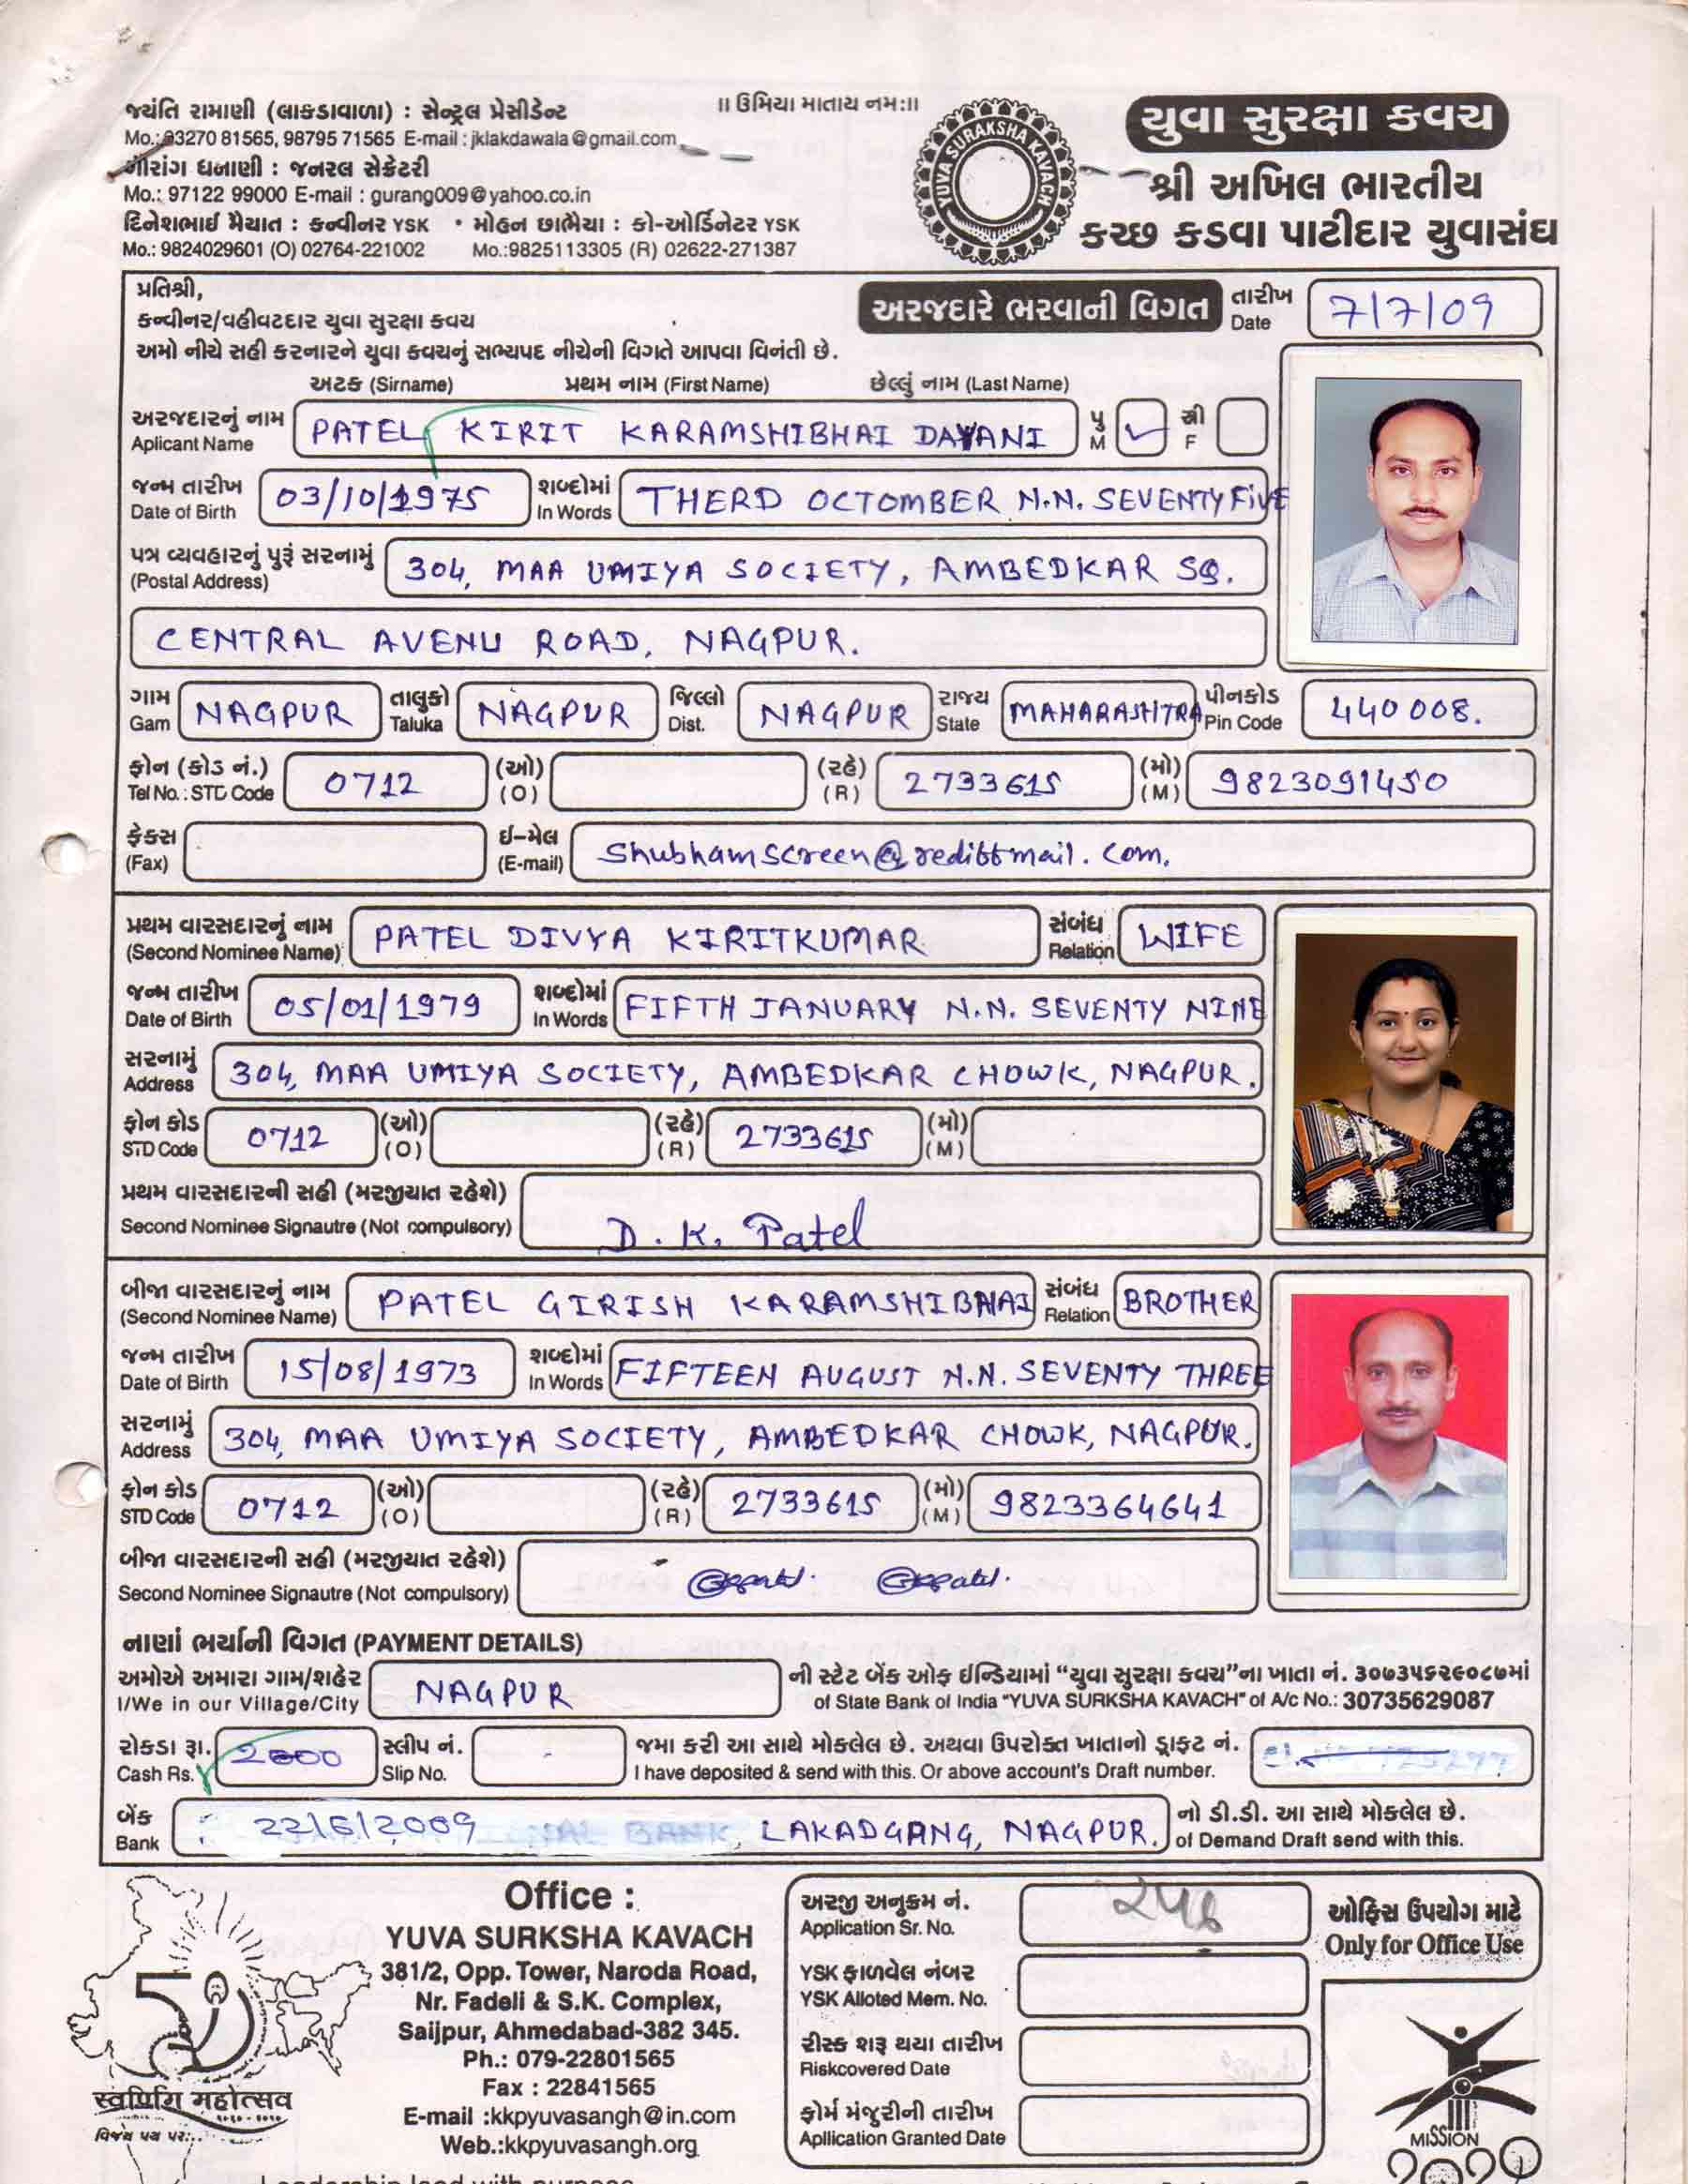 ॥ ઉમિયા માતાય નમઃ॥
જયંતિ રામાણી (લાકડાવાળા) : સેન્ટ્રલ પ્રેસીડેન્ટ
Mo.: 93270 81565, 98795 71565 E-mail : jklakdawala@gmail.com
ગૌરાંગ ધનાણી : જનરલ સેક્રેટરી
Mo.: 97122 99000 E-mail : gurang009@yahoo.co.in
દિનેશભાઈ મૈયાત : કન્વીનર YSK • મોહન છાભૈયા : કો-ઓર્ડિનેટર YSK
Mo.: 9824029601 (O) 02764-221002 Mo.:9825113305 (R) 02622-271387
YUVA SURAKSHA KAVACH
યુવા સુરક્ષા કવચ
શ્રી અખિલ ભારતીય
કચ્છ કડવા પાટીદાર યુવાસંઘ
પ્રતિશ્રી,
કન્વીનર/વહીવટદાર યુવા સુરક્ષા કવચ
અરજદારે ભરવાની વિગત તારીખ Date 7/7/09
અમો નીચે સહી કરનારને યુવા કવચનું સભ્યપદ નીચેની વિગતે આપવા વિનંતી છે.
અટક (Sirname) પ્રથમ નામ (First Name) છેલ્લું નામ (Last Name)
અરજદારનું નામ Aplicant Name PATEL KIRIT KARAMSHIBHAI DAYANI પુ M ✓ સ્રી F
જન્મ તારીખ Date of Birth 03/10/1975 શબ્દોમાં In Words THERD OCTOMBER N.N. SEVENTY FiVE
પત્ર વ્યવહારનું પુરૂં સરનામું (Postal Address) 304, MAA UMIYA SOCIETY, AMBEDKAR SQ.
CENTRAL AVENU ROAD, NAGPUR.
ગામ Gam NAGPUR તાલુકો Taluka NAGPUR જિલ્લો Dist. NAGPUR રાજ્ય State MAHARASHTRA પીનકોડ Pin Code 440 008.
ફોન (કોડ નં.) Tel No. : STD Code 0712 (ઓ) (O) (રહે) (R) 2733615 (મો) (M) 9823091450
ફેક્સ (Fax) ઈ-મેલ (E-mail) Shubhamscreen@rediffmail.com.
પ્રથમ વારસદારનું નામ (Second Nominee Name) PATEL DIVYA KIRITKUMAR સંબંધ Relation WIFE
જન્મ તારીખ Date of Birth 05/01/1979 શબ્દોમાં In Words FIFTH JANUARY N.N. SEVENTY NINE
સરનામું Address 304, MAA UMIYA SOCIETY, AMBEDKAR CHOWK, NAGPUR.
ફોન કોડ STD Code 0712 (ઓ) (O) (રહે) (R) 2733615 (મો) (M)
પ્રથમ વારસદારની સહી (મરજીયાત રહેશે)
Second Nominee Signautre (Not compulsory) D. K. Patel
બીજા વારસદારનું નામ (Second Nominee Name) PATEL GIRISH KARAMSHIBHAI સંબંધ Relation BROTHER
જન્મ તારીખ Date of Birth 15/08/1973 શબ્દોમાં In Words FIFTEEN AUGUST N.N. SEVENTY THREE
સરનામું Address 304, MAA UMIYA SOCIETY, AMBEDKAR CHOWK, NAGPUR.
ફોન કોડ STD Code 0712 (ઓ) (O) (રહે) (R) 2733615 (મો) (M) 9823364641
બીજા વારસદારની સહી (મરજીયાત રહેશે)
Second Nominee Signautre (Not compulsory)
નાણાં ભર્યાની વિગત (PAYMENT DETAILS)
અમોએ અમારા ગામ/શહેર NAGPUR ની સ્ટેટ બેંક ઓફ ઇન્ડિયામાં “યુવા સુરક્ષા કવચ”ના ખાતા નં. ૩૦૭૩૫૬૨૯૦૮૭માં
I/We in our Village/City of State Bank of India "YUVA SURKSHA KAVACH" of A/c No.: 30735629087
રોકડા રૂા. 2000 સ્લીપ નં. - જમા કરી આ સાથે મોકલેલ છે. અથવા ઉપરોક્ત ખાતાનો ડ્રાફ્ટ નં.
Cash Rs. Slip No. I have deposited & send with this. Or above account's Draft number.
બેંક Bank 22/6/2009 BANK, LAKADGANG, NAGPUR. નો ડી.ડી. આ સાથે મોકલેલ છે.
of Demand Draft send with this.
50
स्वर्णिम महोत्सव
Office :
YUVA SURKSHA KAVACH
381/2, Opp. Tower, Naroda Road,
Nr. Fadeli & S.K. Complex,
Saijpur, Ahmedabad-382 345.
Ph.: 079-22801565
Fax : 22841565
E-mail :kkpyuvasangh@in.com
Web.:kkpyuvasangh.org
અરજી અનુક્રમ નં.
Application Sr. No.
YSK ફાળવેલ નંબર
YSK Alloted Mem. No.
રીસ્ક શરૂ થયા તારીખ
Riskcovered Date
ફોર્મ મંજુરીની તારીખ
Apllication Granted Date
ઓફિસ ઉપયોગ માટે
Only for Office Use
MISSION
2020